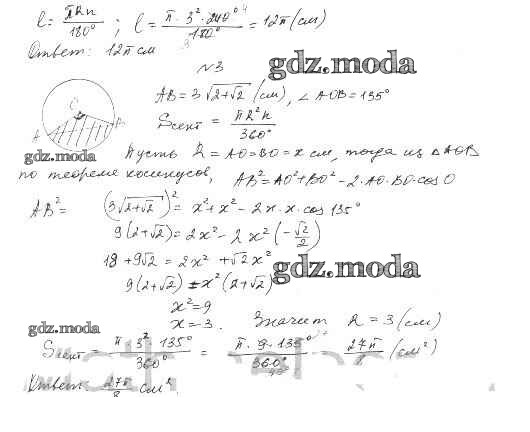 l = πRn/180° ; l = π·3²·240°/180° = 12π (см)
Ответ: 12π см
№3
gdz.moda
AB = 3√(2+√2) (см), ∠AOB = 135°
Sсект = πR²n/360°
A B
gdz.moda
Пусть R = AO = BO = x см, тогда из △AOB
по теореме косинусов, AB² = AO² + BO² - 2·AO·BO·cos O
AB² = (3√(2+√2))² = x² + x² - 2x·x·cos 135°
9(2+√2) = 2x² - 2x²(-√2/2)
18 + 9√2 = 2x² + √2x²
gdz.moda
9(2+√2) = x²(2+√2)
x² = 9
x = 3. Значит R = 3 (см)
gdz.moda
Sсект = π·3²·135°/360° = π·9·135°/360° = 27π/8 (см²)
Ответ: 27π/8 см².